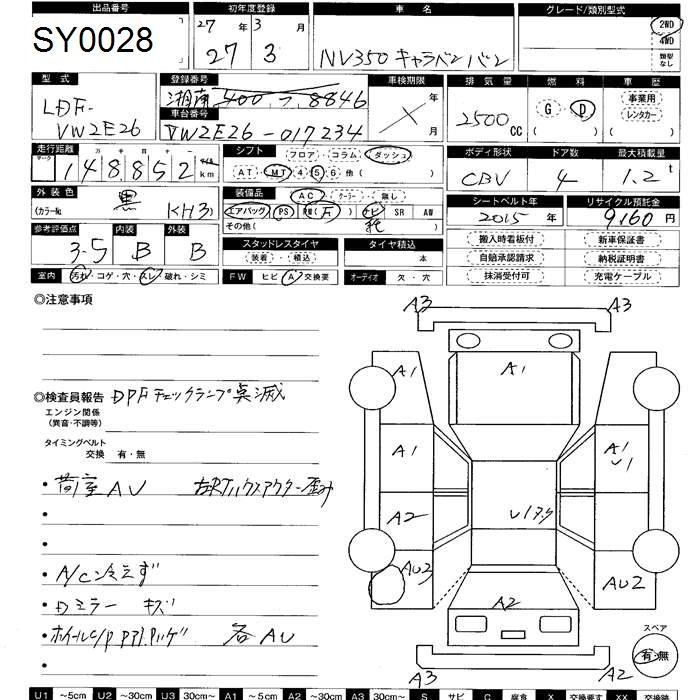 出品番号 初年度登録 車名 グレード/類別型式
SY0028 27年 3月 2WD
27 3 NV350 キャラバン バン 4WD
類型なし
型式 登録番号 車検期限 排気量 燃料 車歴
LDF- 湘南 400 つ 8846 年 事業用
VW2E26 車台番号 2500cc G D レンタカー
VW2E26-017234 月
走行距離 シフト フロア・コラム・ダッシュ ボディ形状 ドア数 最大積載量
148,852 km AT・MT 4 5 6 他( ) CBV 4 1.2 t
外装色 装備品 AC・クーラー・無し シートベルト年 リサイクル預託金
(カラーNo. 黒 KH3) エアバッグ PS PW(F) ナビ SR AW 2015年 9160円
参考評価点 内装 外装 その他( )
3.5 B B スタッドレスタイヤ タイヤ積込 搬入時看板付 新車保証書
装着・積込 本 自賠承認請求 納税証明書
室内 汚れ・コゲ・穴・スレ・破れ・シミ FW ヒビ・A・交換要 オーディオ 欠・穴 抹消受付可 充電ケーブル
◎注意事項
A3 A3
A1 A1
◎検査員報告 DPFチェックランプ点滅
エンジン関係
(異音・不調等)
タイミングベルト
交換 有・無
A1 A1 U1
・荷室AU
A2 U1
・A/C冷えず
AU3 AU2
・Dミラー キズ
A2
・ホイールc/p 各AU
スペア
有・無
A3 A2
U1 ~5cm U2 ~30cm U3 30cm~ A1 ~5cm A2 ~30cm A3 30cm~ S サビ C 腐食 X 交換要す XX 交換跡